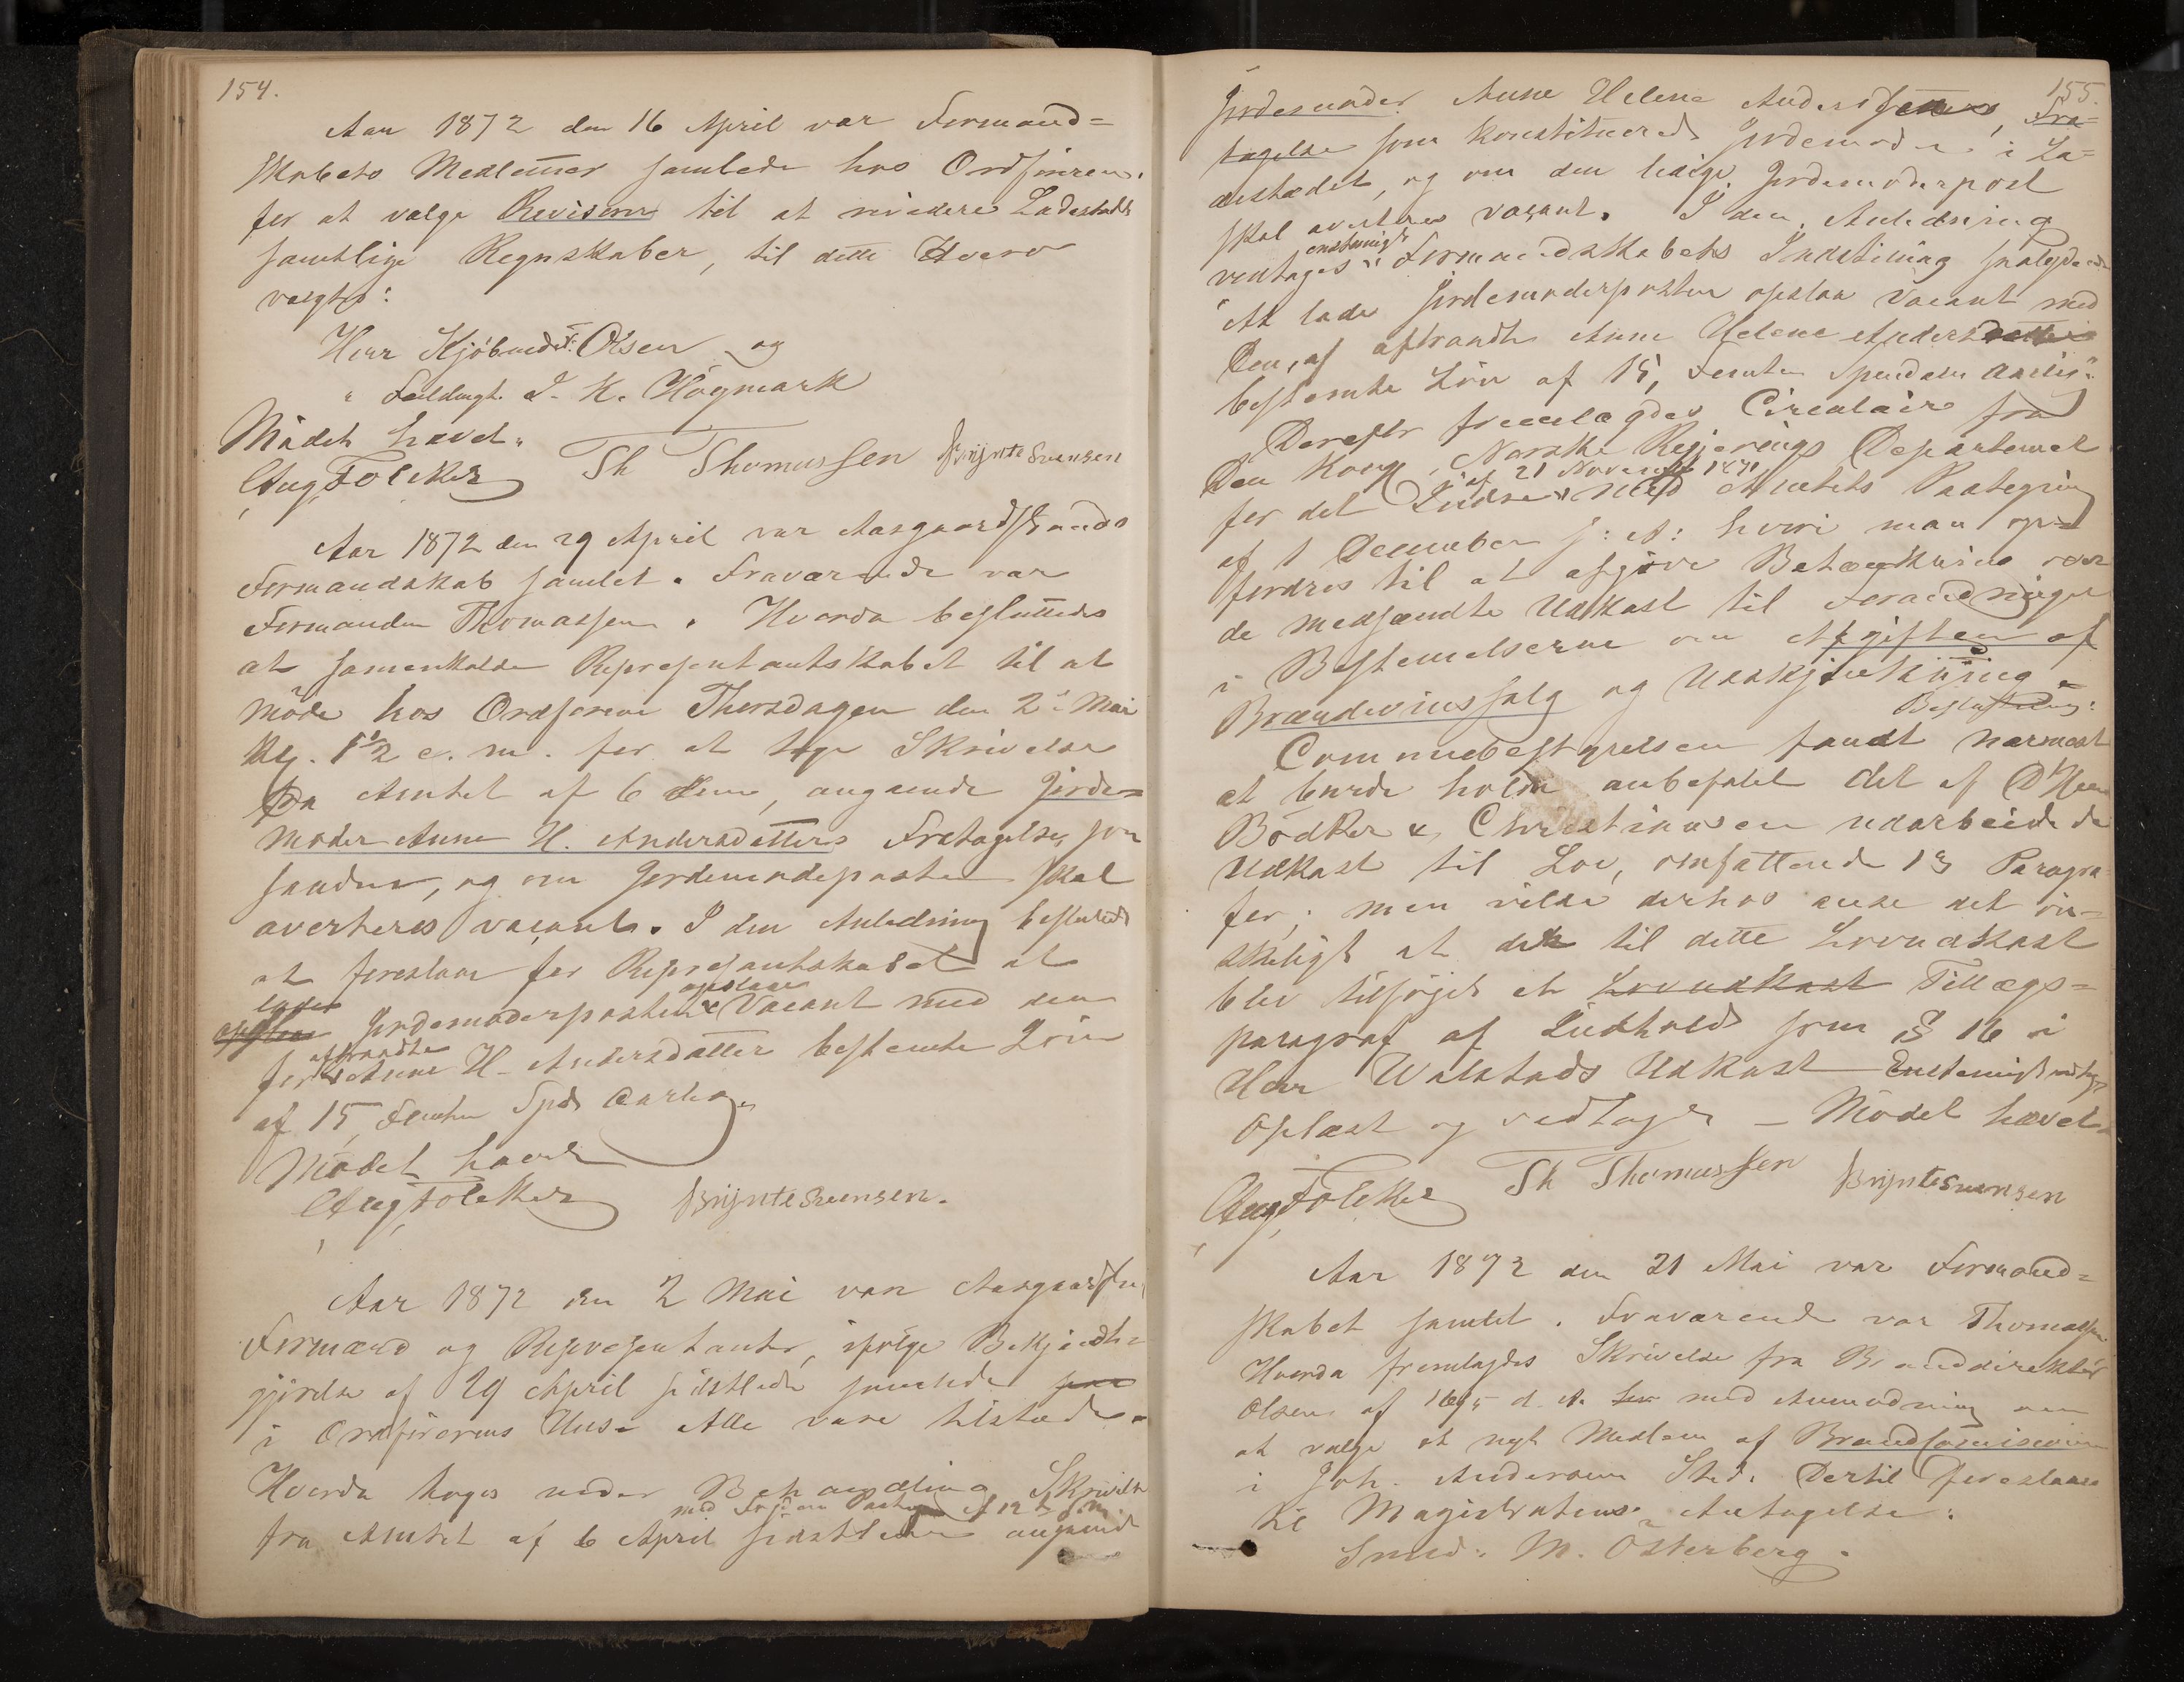 154.
Aar 1872 den 16 April var Formand=
skabets Medlemer samlede hos Ordføreren
for at vælge Revisorer til at revidere Ladestedets
samtlige Regnskaber, til dette Hverv
valgtes:
Herr Kjöbmd Olsen og
" Fuldmgt. J. K. Högmark
Mödet hævet.
Aug Foleker Th Thomassen Brijnte Svensen
Aar 1872 den 29 April var Aasgaardstrands
Formandskab samlet. Fraværende var
Formanden Thomassen. Hvorda besluttedes
at samenkalde Representantskabet til at
möde hos Ordföreren Thorsdagen den 2 Mai
Kl. 1½ e. m. for at tage Skrivelse
fra Amtet af 6 dens, angaaende Jorde=
moder Anne H. Andersdatters Fratagelse som
saadan, og om Jordemodeposten skal
averteres vacant. I den Anledning besluttedes
at foreslaa for Represantskabet at
lader opslaae
opslaa Jordemoderposten Vacant med den
afstraadte
for Anne H. Andersdatter bestemte Lön
af 15, Femten Spd aarlig.
Mödet hævet
Aug Foleker Brijnte Svensen.
Aar 1872 den 2 Mai var Aasgaardstr.
Formænd og Representanter, ifölge Bekjendt=
gjörelse af 29 April sidstlede samlede paa
i Ordförerens Huus. Alle vare tilstæde.
Hvorda toges under Behandling Skrivelse
med Fogdens Paategn af 12 s. m.
fra Amtet af 6 April sidstleden angaaende
155.
Jordemoder Anne Helene Anderssens, Fra=
tagelse som konstitueret Jordemoder i La=
destædet, og om den ledige Jordemoderpost
skal averteres vacant. I den Anledning
enstemigt
vedtages Formandskabets Indstilling saalydende
"At lade Jordemoderposten opslaa Vacant med
Den, af aftraadte Anne Helene Andersdatter
bestemte Lön af 15, Femten Speciedaler aarlig".
Derefter fremlagdes Circulair fra
Den Kong. Norske Regjerings Departemet
af 21 November 1871
for det Indre med Amtets Paategning
af 1 December s: A: hvori man op=
fordres til at afgive Betænkning over
de medsændte Udkast til Forandringer
i Bestemelserne om Afgiften af
Brændeviinssalg og Udskjænkning
Beslutning:
Comunebestyrelsen fandt nærmest
at burde holde anbefalet det af D'Herr
Bödker & Christiansen udarbeidede
Udkast til Lov, omfattende 13 Paragra
fer; men vilde derhos anse det ön=
skeligt at der til dette Lovudkast
blev tilföjet et Lovudkast Tillægs=
paragraf af Indhold som § 16 i
Herr Ulstads Udkast Enstemigt vedtaget
Oplæst og vedtaget – Mödet hævet
Aug Foleker Th Thomassen Brijnte Svensen
Aar 1872 den 21 Mai var Formand=
skabet samlet. Fraværende var Thomassen
Hvorda fremlagdes Skrivelse fra Branddirektör
Olsen af 16/5 d. A. med Anmodning om
at vælge et nyt Medlem af Brandcomisionen
i Joh. Andersens Sted. Dertil foreslaaes
til Magistratens Antagelse:
Smed: M. Österberg.